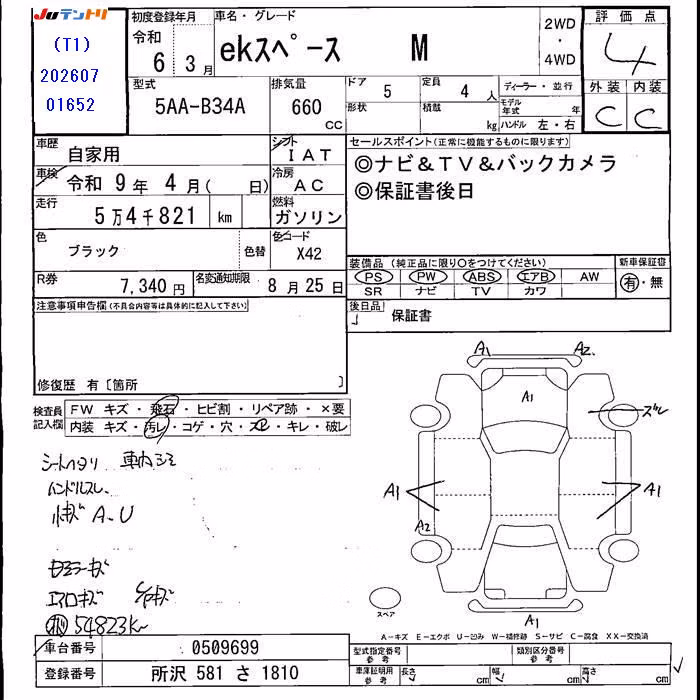 JUテントリ
(T1)
202607
01652
初度登録年月
令和
6 3月
車名・グレード
ekスペース M
2WD
・
4WD
評価点
4
外装 内装
C C
型式
5AA-B34A
排気量
660
CC
ドア
5
定員
4 人
形状
積載
kg
ディーラー・並行
モデル年式 年
ハンドル 左・右
車歴
自家用
シフト
IAT
車検
令和 9年 4月( 日)
冷房
AC
走行
5万4千821 km
燃料
ガソリン
色
ブラック
色替
色コード
X42
R券
7,340円
名変通知期限
8月25日
セールスポイント(正常に機能するものに限ります)
◎ナビ&TV&バックカメラ
◎保証書後日
装備品(純正品に限り○をつけてください)
PS PW ABS エアB AW
SR ナビ TV カワ
新車保証書
有・無
後日品
保証書
注意事項申告欄(不具合内容等は具体的に記入して下さい)
修復歴 有〔箇所 〕
検査員
記入欄
FW キズ・飛石・ヒビ割・リペア跡・×要
内装 キズ・汚レ・コゲ・穴・スレ・キレ・破レ
シートヘタリ
ハンドルスレ
A.U
エアロキズ
54823K
A1 A2
A1
ズレ
A1 A1
A2
A1
スペア
A-キズ E-エクボ U-凹み W-補修跡 S-サビ C-腐食 XX-交換済
車台番号 0509699
登録番号 所沢 581 さ 1810
型式指定番号
参考
類別区分番号
参考
車庫証明用
参考
長さ cm 幅 cm 高さ cm